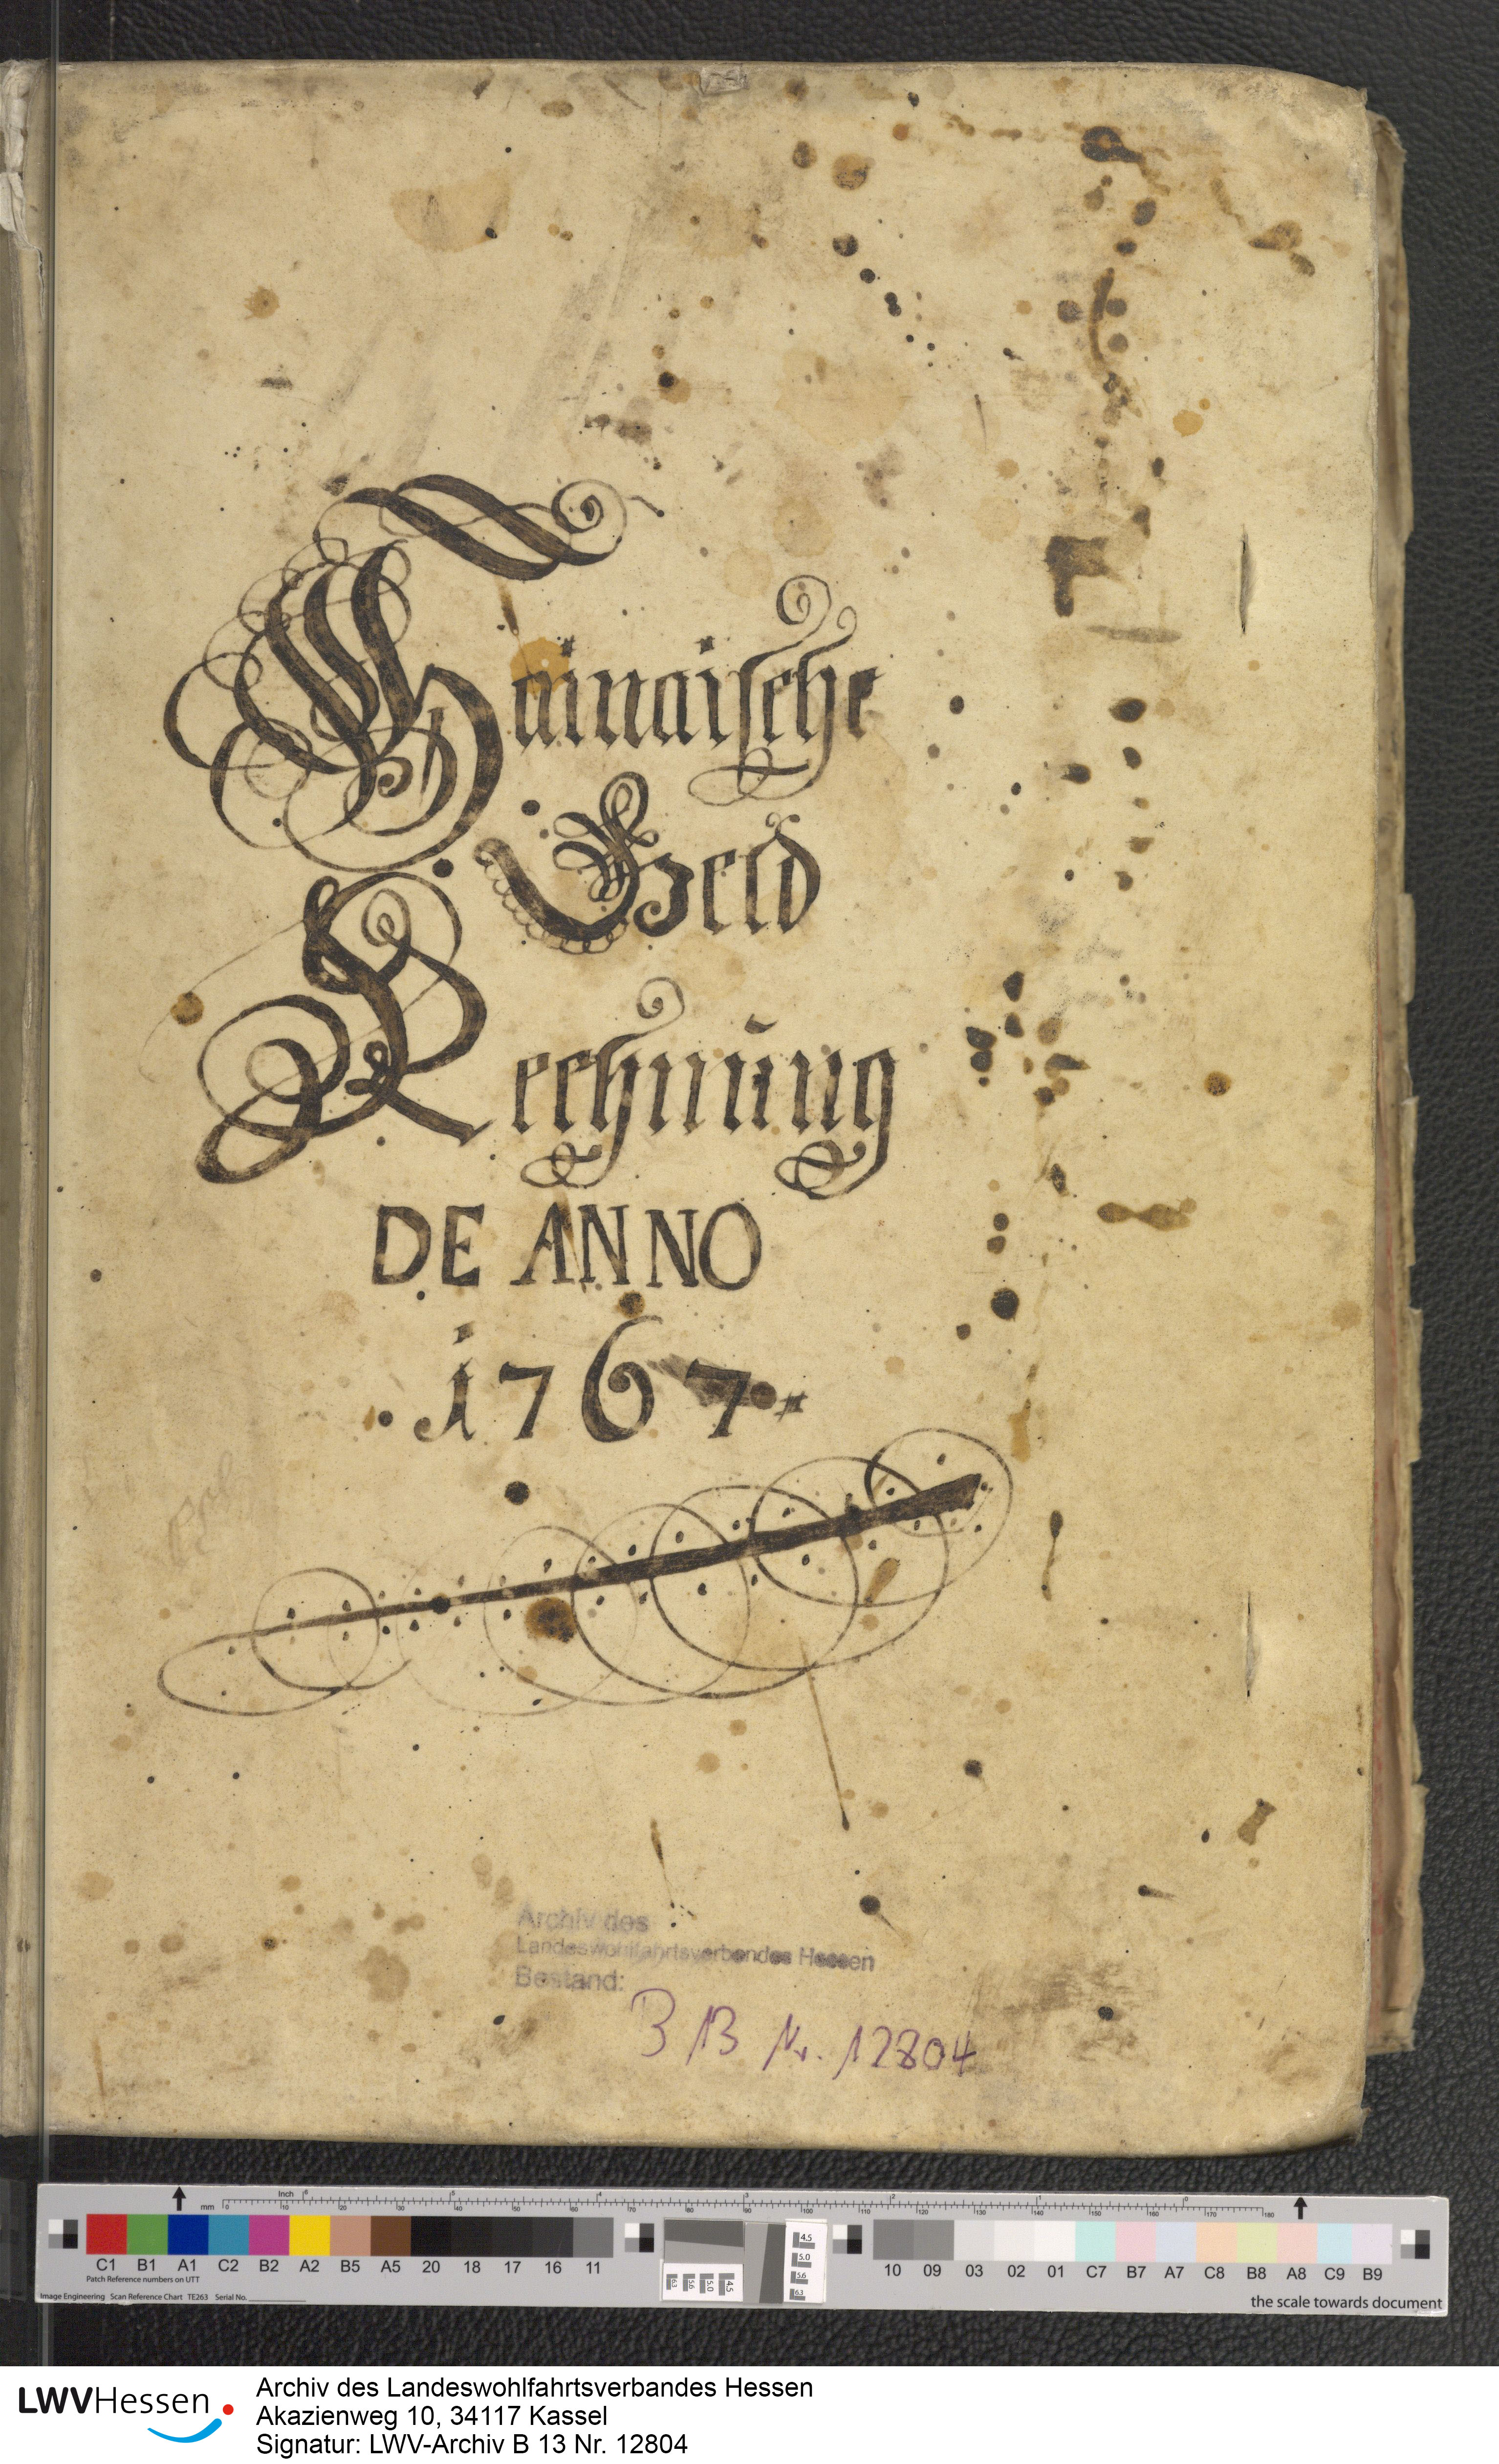 Hainaische
Geld
Rechnung
DE ANNO
1767
Archiv des
Landeswohlfahrtsverbandes Hessen
Bestand:
B 13 Nr. 12804
mm
Inch
C1 B1 A1 C2 B2 A2 B5 A5 20 18 17 16 11
10 09 03 02 01 C7 B7 A7 C8 B8 A8 C9 B9
Patch Reference numbers on UTT
Image Engineering Scan Reference Chart TE263 Serial No.
the scale towards document
LWVHessen
Archiv des Landeswohlfahrtsverbandes Hessen
Akazienweg 10, 34117 Kassel
Signatur: LWV-Archiv B 13 Nr. 12804